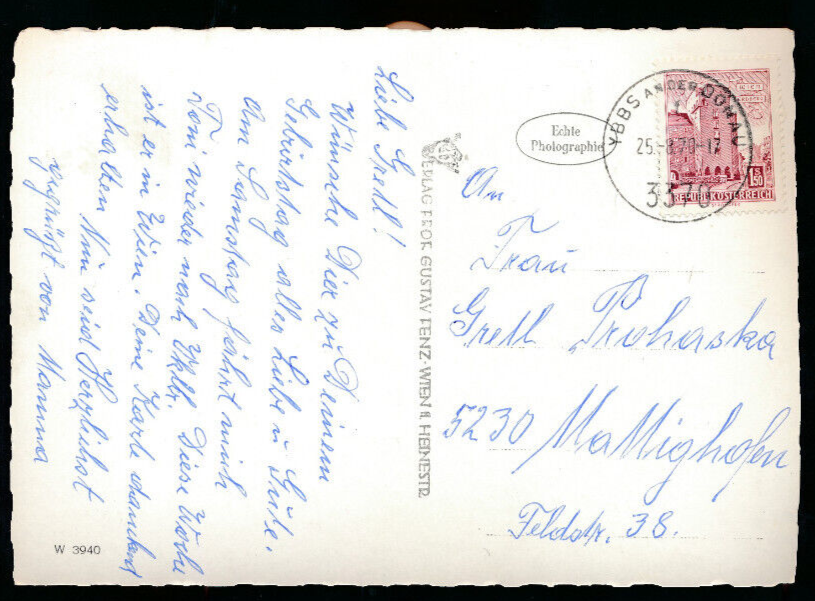 Liebe Gretl!
Wünsche Dier zu Deinem
Gebürtstag alles Liebe u Gute.
Am Samstag fährt mich
Toni wieder nach Ybbs. Diese Woche
ist er in Wien. Deine Karte dankent
erhalten Nun seid Herzlichst
vegrüßt von Mamma
W 3940
VERLAG PROF. GUSTAV FENZ-WIEN II. HEINESTR.
Echte
Photographie
YBBS AN DER DONAU
25.-8.70-17
3370
WIEN
S 1.50
REPUBLIK ÖSTERREICH
An
Frau
Gretl Prohaska
5230 Mattighofen
Feldstr. 38.